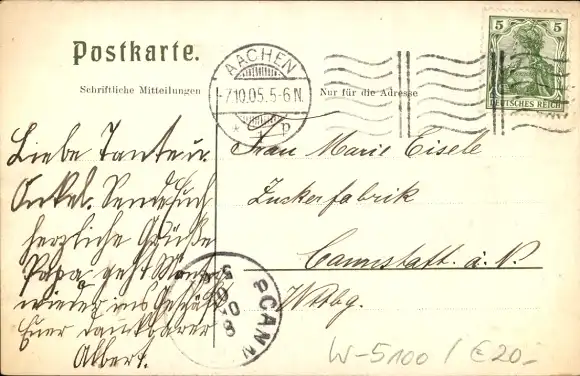 Postkarte.
Schriftliche Mitteilungen
Nur für die Adresse
AACHEN
-7.10.05.5-6N.
* 1 p
5 5
DEUTSCHES REICH
Liebe Tante u.
Onkel. Sende Euch
herzliche Grüße
Papa geht
wieder ins Geschäft
Euer dankbarer
Albert.
Frau Marie Eisele
Zuckerfabrik
Cannstatt. a. N.
Wttbg.
CANN
W-5100 / € 20.-